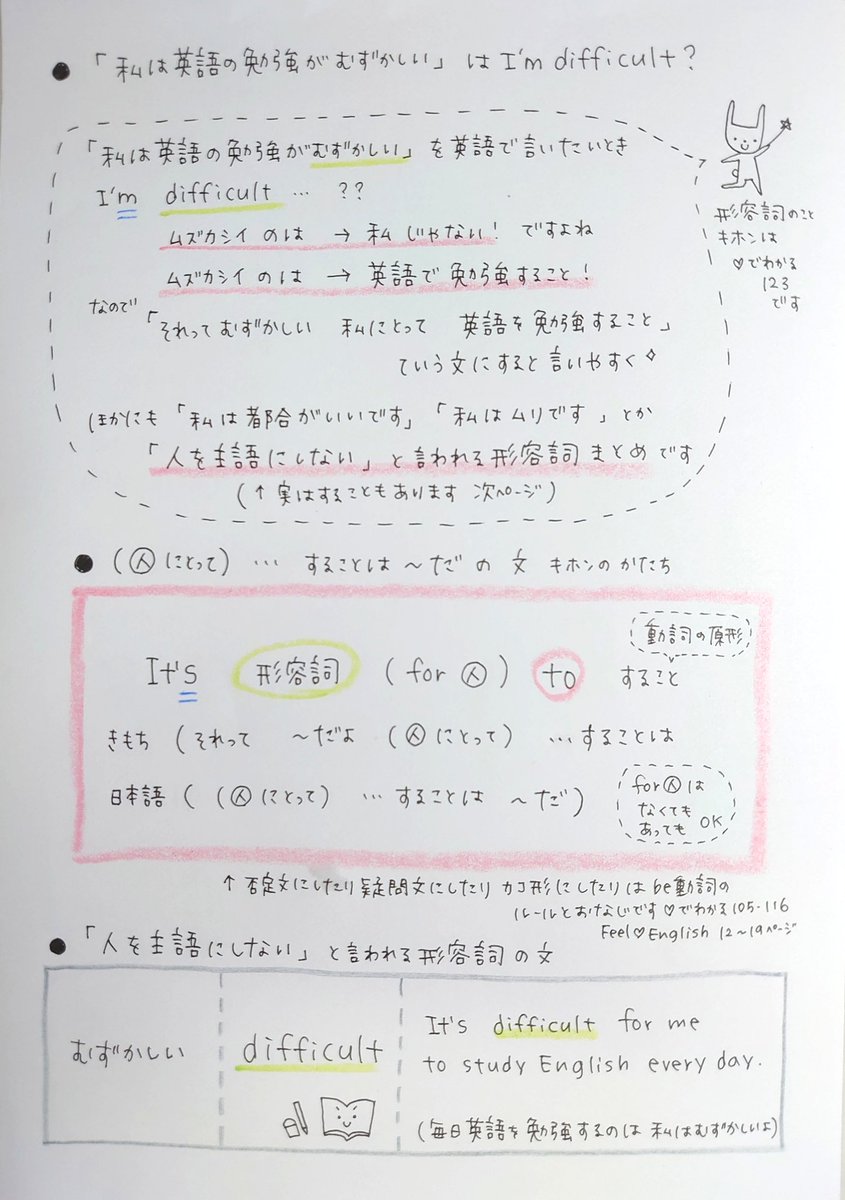 ● 「私は英語の勉強がむずかしい」は I'm difficult?
「私は英語の勉強がむずかしい」を英語で言いたいとき
I'm difficult … ??
ムズカシイのは → 私じゃない! ですよね
ムズカシイのは → 英語で勉強すること!
なので
「それってむずかしい 私にとって 英語を勉強すること」
ていう文にすると言いやすく
ほかにも「私は都合がいいです」「私はムリです」とか
「人を主語にしない」と言われる形容詞まとめです
(↑実はすることもあります 次ページ)
形容詞のこと
キホンは
♡でわかる
123
です
● (人にとって) … することは 〜だ の 文 キホンのかたち
動詞の原形
It's 形容詞 (for 人) to すること
きもち (それって 〜だよ (人にとって) …することは
日本語 ( (人にとって) …することは 〜だ)
for人は
なくても
あっても OK
↑ 否定文にしたり疑問文にしたりカコ形にしたりはbe動詞の
ルールとおなじです♡でわかる105-116
Feel♡English 12〜19ページ
● 「人を主語にしない」と言われる形容詞の文
むずかしい
difficult
It's difficult for me
to study English every day.
(毎日英語を勉強するのは 私はむずかしいよ)